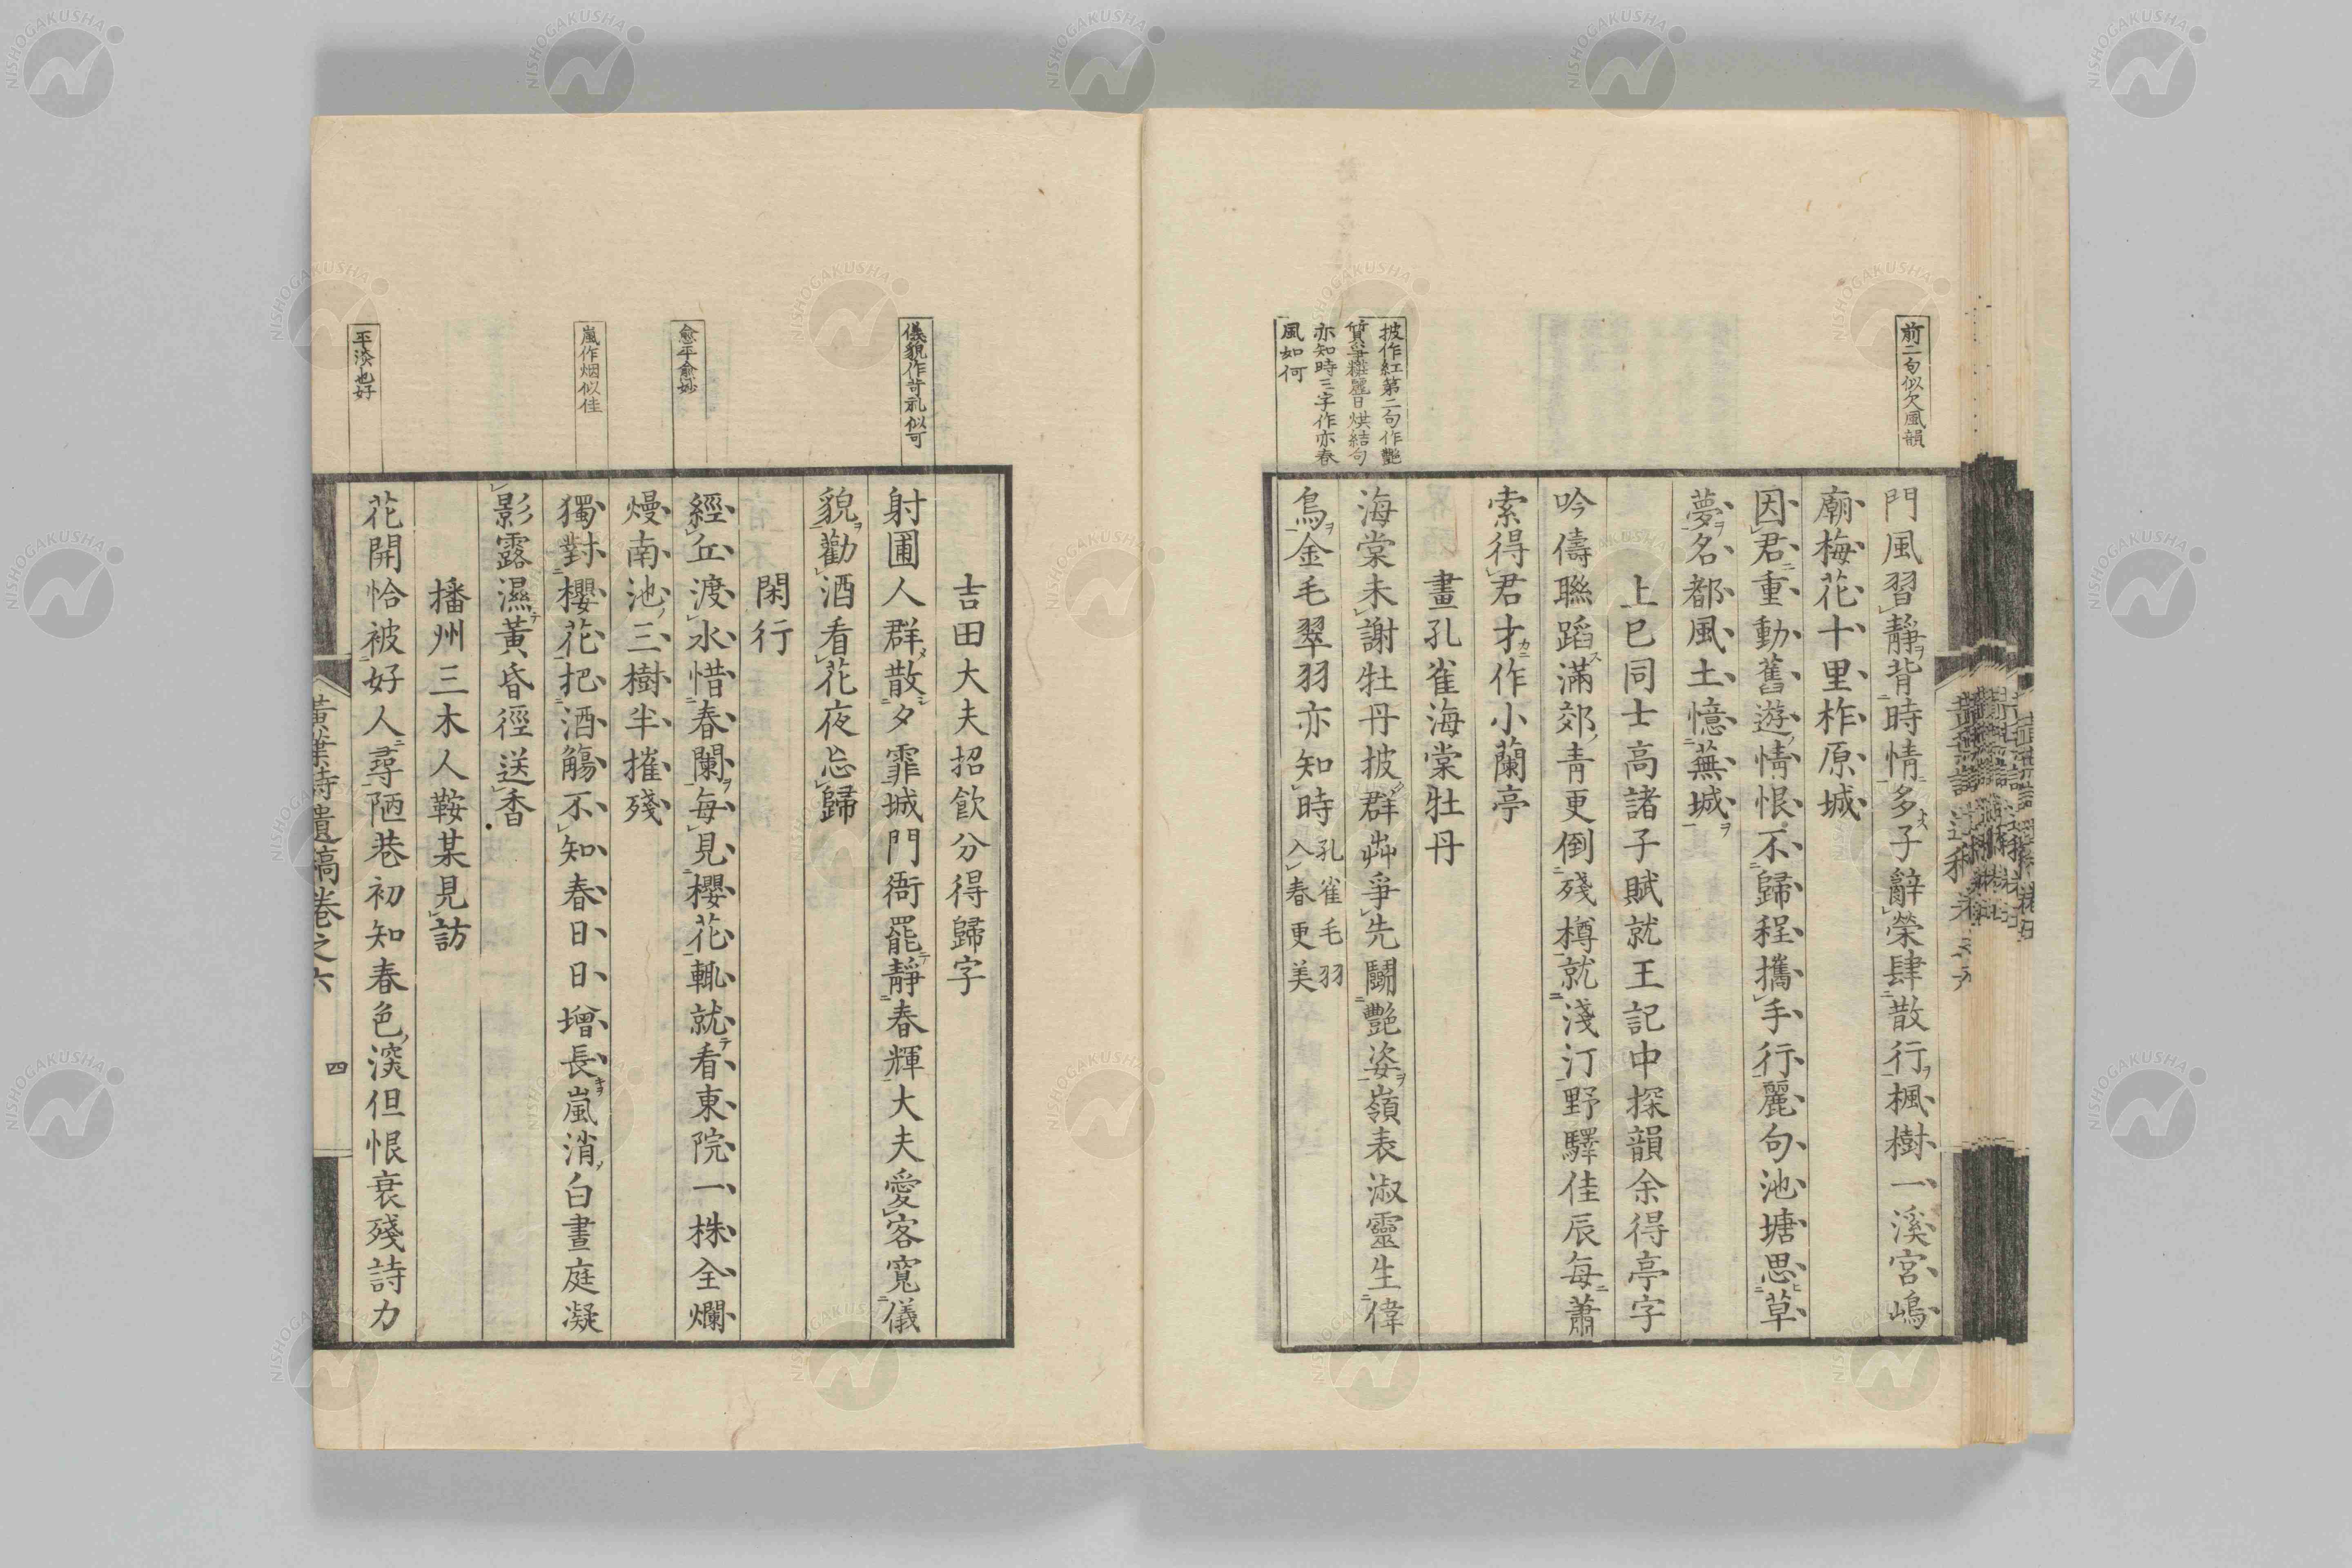 前二句似欠風韻
門風習靜背時情多子辭榮肆散行楓樹一溪宮嶋
廟梅花十里柞原城
因君重動舊遊情恨不歸程攜手行麗句池塘思草
夢名都風土憶蕪城
上巳同士高諸子賦就王記中探韻余得亭字
吟儔聯蹈滿郊青更倒殘樽就淺汀野驛佳辰每蕭
索得君才作小蘭亭
畫孔雀海棠牡丹
披作紅第二句作艷
質爭粧麗日烘結句
亦知時三字作亦春
風如何
海棠未謝牡丹披群艸爭先鬭艷姿嶺表淑靈生偉
鳥金毛翠羽亦知時孔雀毛羽
入春更美
吉田大夫招飮分得歸字
儀貌作苛礼似可
射圃人群散夕霏城門衙罷靜春輝大夫愛客寬儀
貌勸酒看花夜忘歸
閑行
愈平愈妙
經丘渡水惜春闌每見櫻花輒就看東院一株全爛
熳南池三樹半摧殘
嵐作烟似佳
獨對櫻花把酒觴不知春日日增長嵐消白晝庭凝
影露濕黃昏徑送香
播州三木人鞍某見訪
平淡也好
花開恰被好人尋陋巷初知春色深但恨衰殘詩力
黃葉詩遺稿卷之六
四
NISHOGAKUSHA